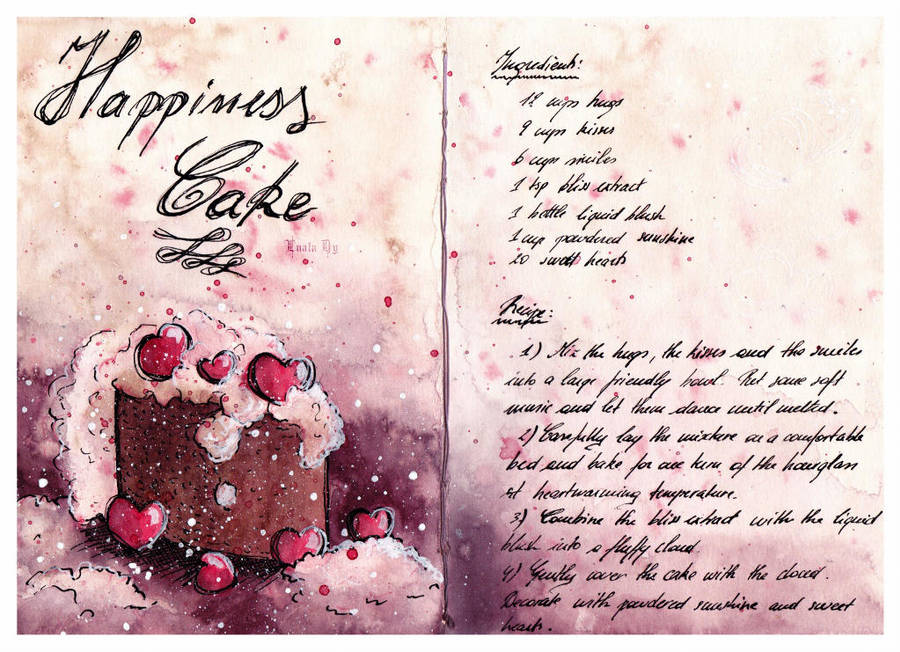 Happiness
Cake
Enala Dy
Ingredients:
12 cups hugs
9 cups kisses
6 cups smiles
1 tsp bliss extract
1 bottle liquid blush
1 cup powdered sunshine
20 sweet hearts
Recipe:
1) Mix the hugs, the kisses and the smiles
into a large friendly bowl. Put some soft
music and let them dance until melted.
2) Carefully lay the mixture on a comfortable
bed and bake for one turn of the hourglass
at heartwarming temperature.
3) Combine the bliss extract with the liquid
blush into a fluffy cloud.
4) Gently cover the cake with the cloud.
Decorate with powdered sunshine and sweet
hearts.